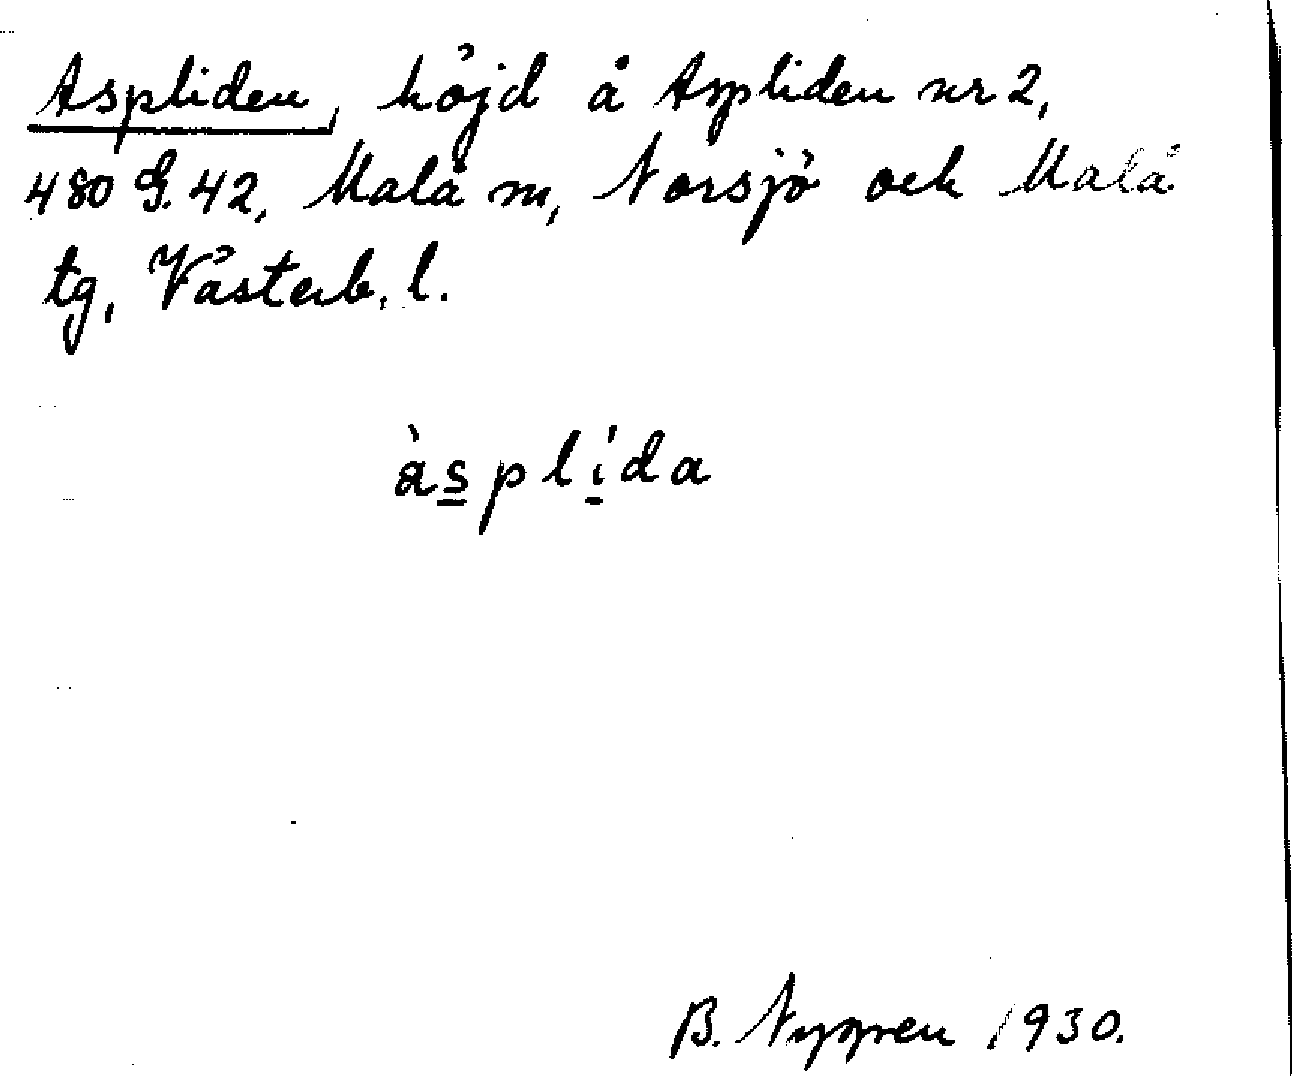 Aspliden, höjd å Aspliden nr 2,
480 G. 42, Malå m, Norsjö och Malå
tg, Västerb. l.
àsplída
B. Nygren 1930.